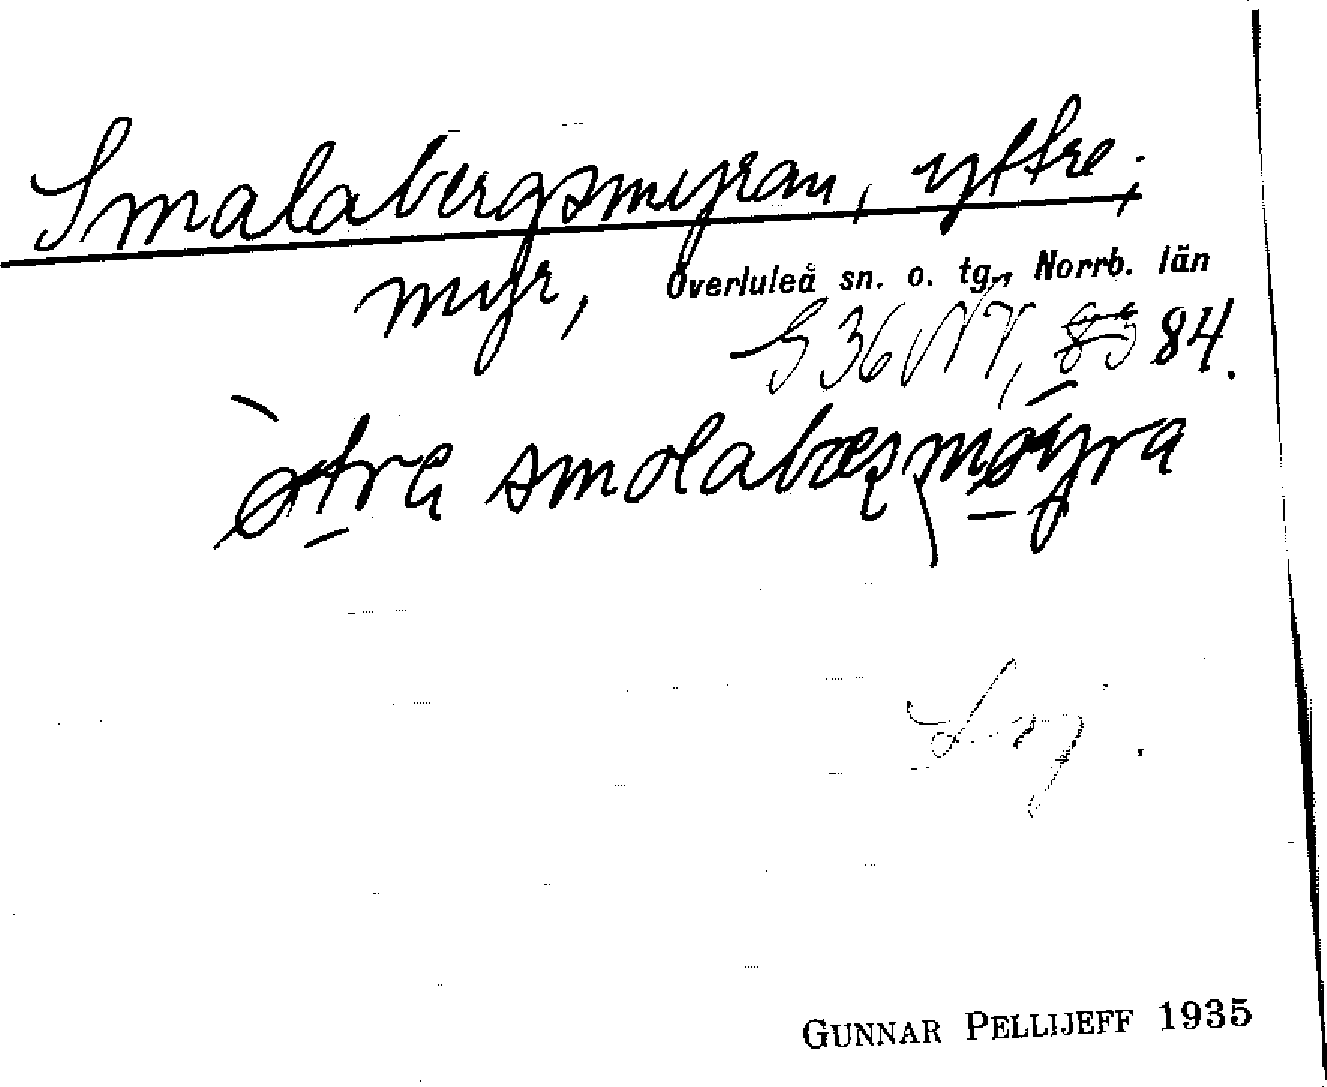 Smalabergsmyran, yttre;
myr, Överluleå sn. o. tg., Norrb. län
S 36 NV, 85 84.
øtra smolabærsmøyra
GUNNAR PELLIJEFF 1935